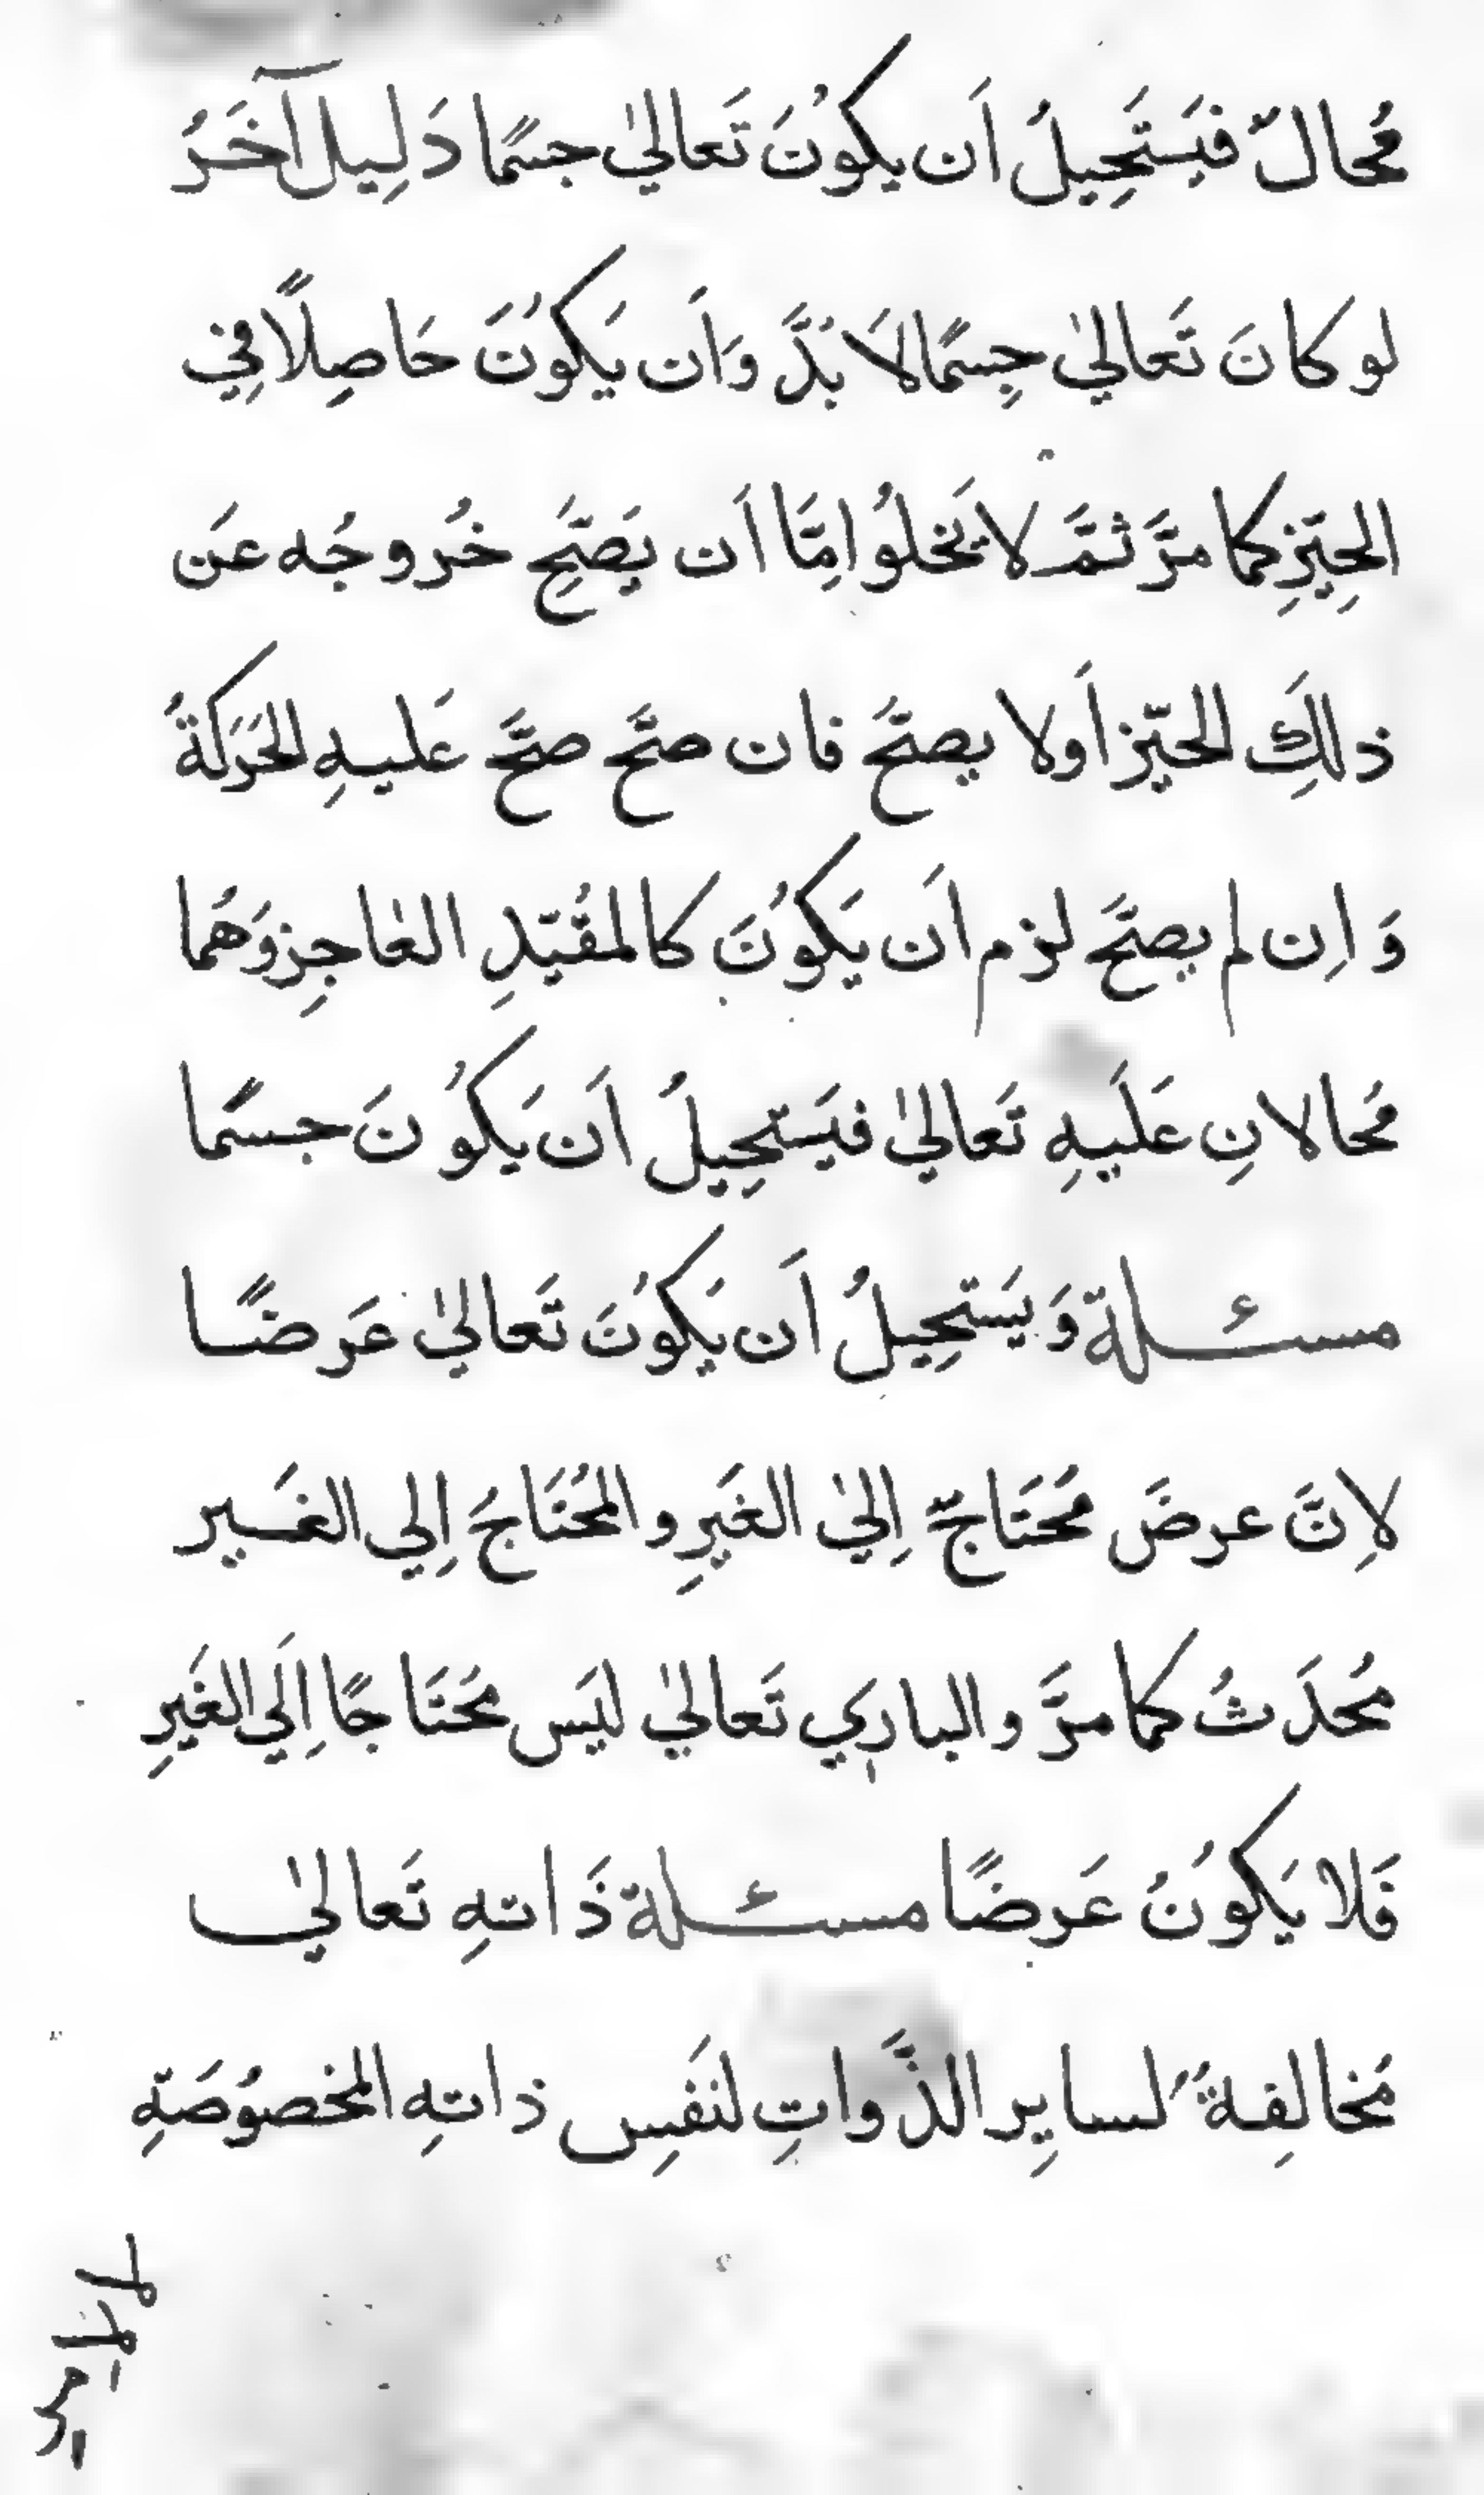 مُحالٌ فيَستَحِيلُ اَن يكوُنَ تَعاليٰ جسمًا دَلِيل آخَرُ
لو كانَ تَعاليٰ جِسمًا لاَ بُدَّ وَاَن يَكوُنَ حَاصِلًا فِي
الحِيّزِ كما مرَّ ثمَّ لا يَخلوُا امِّا اَن يَصَّحِ خُروجُه عَن
ذلكَِ الحيّز اَولا يصحَّ فان صحَّ صحَّ عَليهِ الحَرَكةُ
وَ اِن لم يصحَّ لزم اَن يَكوُنَ كالمقُيّدِ العاجِز وَهُما
مُحالانِ عَلَيهِ تَعاليٰ فيَستحِيلُ اَن يَكوُنَ جسمًا
مسئلة وَيَستحِيلُ اَن يَكوُنَ تَعاليٰ عَرضًا
لاِنَّ عرضَ مُحتَاجٌ اِليٰ الغَيرِ و المحُتَاجَ اِلي الغَير
مُحدَثُ كما مرَّ والبارِي تَعاليٰ ليَس مُحتَاجًا اِلَي الغَيرِ
فَلا يَكوُنُ عَرضًا مسئلة ذَاتهِ تَعاليٰ
مُخالِفةٌ لسايِر الذَّواتِ لنَفسِ ذاتهِ المخصوُصَةِ
لا لامر